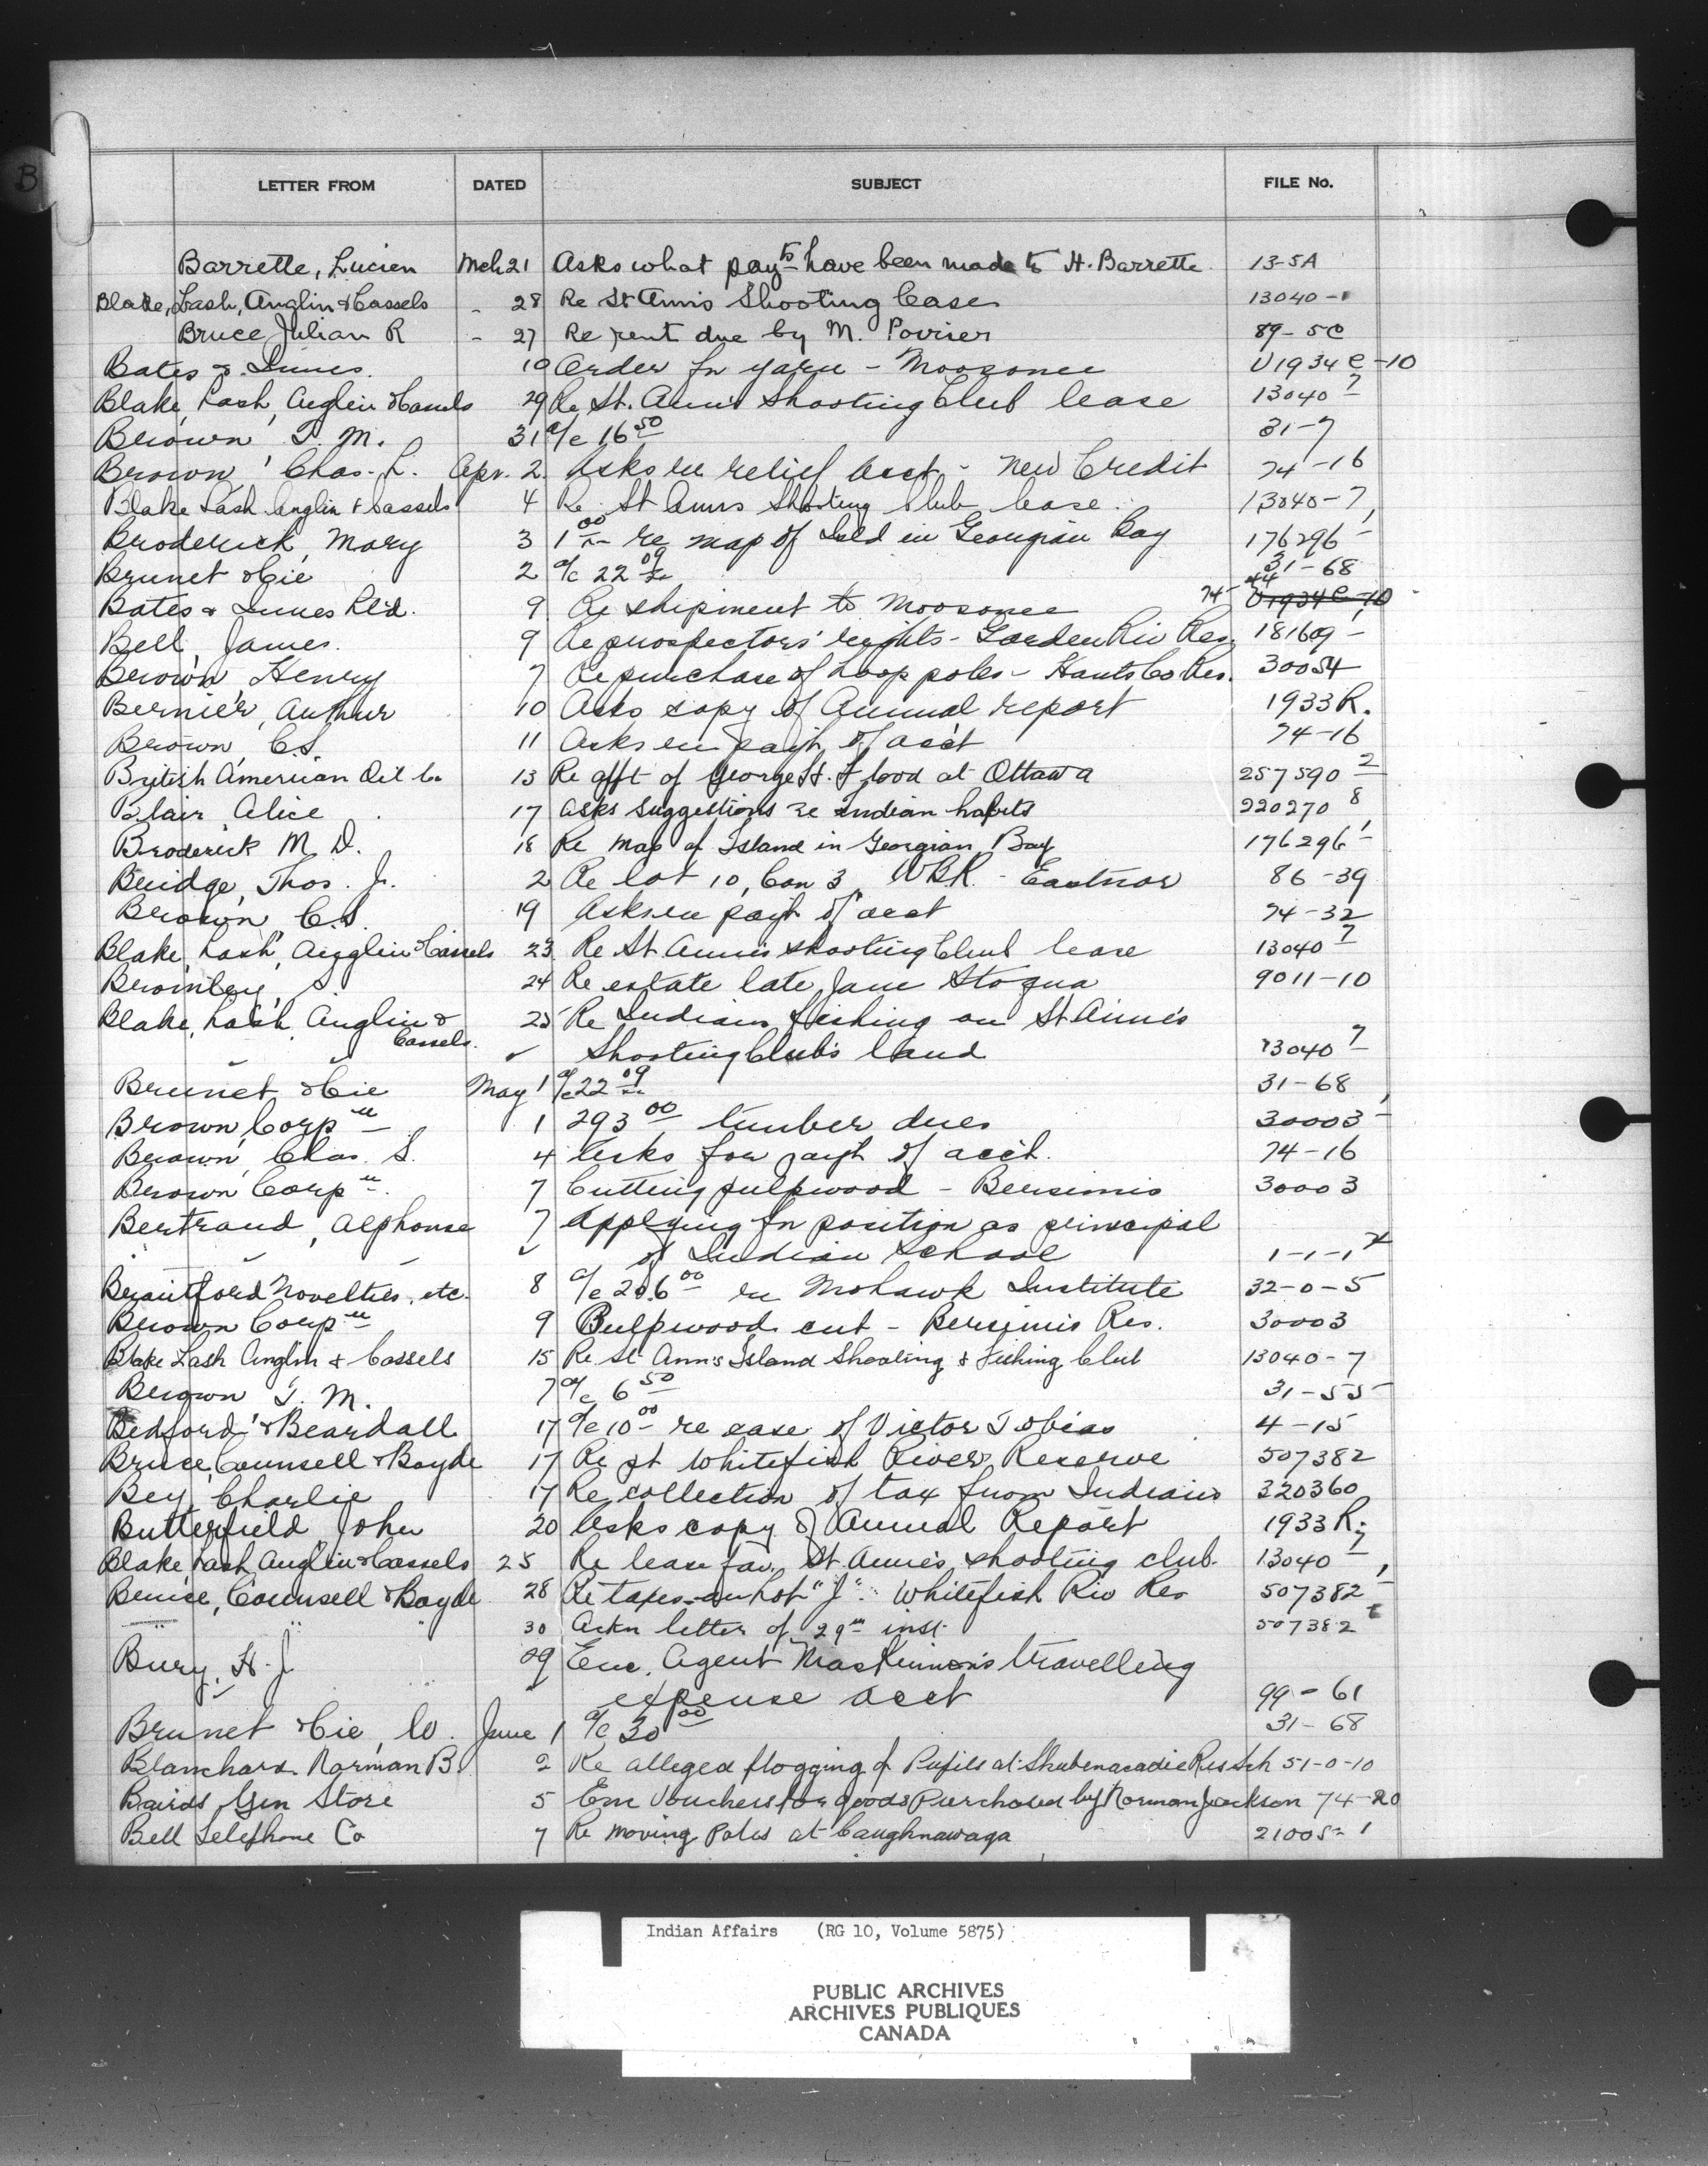 B
LETTER FROM DATED SUBJECT FILE No.
Barrette, Lucien Mch 21 Asks what payts have been made to H. Barrette 13-5A
Blake, Lash, Anglin & Cassels - 28 Re St Ann's Shooting Case 13040-1
Bruce Julian R - 27 Re rent due by M. Povirer 89-5C
Bates & Innes 10 Order for yarn - Moosonee U1934C-10
Blake, Lash, Anglin & Cassels 29 Re St. Ann's Shooting Club lease 13040-7
Brown, T. M. 31 a/c 16 50 31-7
Brown, Chas. L. Apr. 2 Asks re relief acct - New Credit 74-16
Blake Lash Anglin & Cassels 4 Re St Anns Shooting Club lease 13040-7
Broderick, Mary 3 1 00 re map of Isld in Georgian Bay 176296-1
Brunet & Cie 2 a/c 22 09 31-68
Bates & Innes Ltd. 9 Re shipment to Moosonee 74-44 U1934C-10
Bell, James. 9 Re prospectors' rights - Garden Riv Res. 181609-
Brown, Henry 7 Re purchase of hoop poles - Hants Co Res. 30054
Bernier, Arthur 10 Asks copy of Annual report 1933R.
Brown, C.S. 11 Asks re payt. of acc't 74-16
British American Oil Co 13 Re afft of George H. Flood at Ottawa 257590-2
Blair Alice 17 Asks suggestions re Indian habits 220270 8
Broderick M. D. 18 Re Map of Island in Georgian Bay 176296-1
Bridge, Thos. Jr. 2 Re lot 10, Con 3, WBR. - Eastnor 86-39
Brown C.S. 19 Asks re payt of acct 74-32
Blake, Lash, Anglin & Cassels 23 Re St Anne's shooting Club lease 13040-7
Bromley, S. 24 Re estate late Jane Stoqua 9011-10
Blake, Lash, Anglin & 25 Re Indians fishing on St Anne's
Cassels. Shooting Club's land 13040-7
Brunet & Cie May 1 a/c 22 09 31-68
Brown Corpn 1 293 00 timber dues 30003-1
Brown, Chas. S. 4 Asks for payt of acc't. 74-16
Brown Corpn. 7 Cutting pulpwood - Bersimis 30003
Bertrand, Alphonse 7 Applying for position as principal
of Indian School 1-1-1
Brantford Novelties, etc. 8 a/c 206 00 re Mohawk Institute 32-0-5
Brown Corpn 9 Pulpwood cut - Bersimis Res. 30003
Blake Lash Anglin & Cassels 15 Re St Ann's Island Shooting & Fishing Club 13040-7
Brown T. M. 7 a/c 6 50 31-55
Bedford & Beardall 17 a/c 10 00 re case of Victor Tobias 4-15
Bruce, Counsell & Boyde 17 Re pt Whitefish River Reserve 507382
Bey, Charlie 17 Re collection of tax from Indians 320360
Butterfield, John 20 Asks copy of Annual Report 1933R.
Blake, Lash, Anglin & Cassels 25 Re lease fav. St Anne's shooting club. 13040-7
Bruce, Counsell & Boyde 28 Re taxes on Lot "J". Whitefish Riv Res 507382-1
" " " 30 Ackn letter of 29th inst. 507382
Bury, H. J 29 Enc. Agent MacKinnon's travelling
" " expense acct 99-61
Brunet & Cie, Co. June 1 a/c 30 00 31-68
Blanchard Norman B. 2 Re alleged flogging of Pupils at Shubenacadie Res Sch 51-0-10
Bairds Gen Store 5 Enc Vouchers for goods Purchased by Norman Jackson 74-20
Bell Telephone Co 7 Re Moving Poles at Caughnawaga 21005-1
Indian Affairs (RG 10, Volume 5875)
PUBLIC ARCHIVES
ARCHIVES PUBLIQUES
CANADA